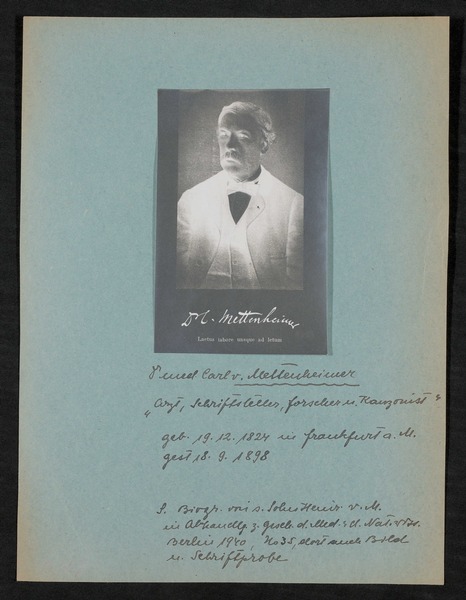 Dr C. Mettenheimer
Laetus labore usque ad letum
Dr med Carl v. Mettenheimer
"Arzt, Schriftsteller, Forscher u. Kanzonist"
geb. 19.12.1824 in Frankfurt a. M.
gest 18. 9. 1898
S. Biogr. von s. Sohn Heinr. v. M.
in Abhandlg. z. Gesch. d. Med. u. d. Nat. Wss.
Berlin 1940, No 35, dort auch Bild
u. Schriftprobe